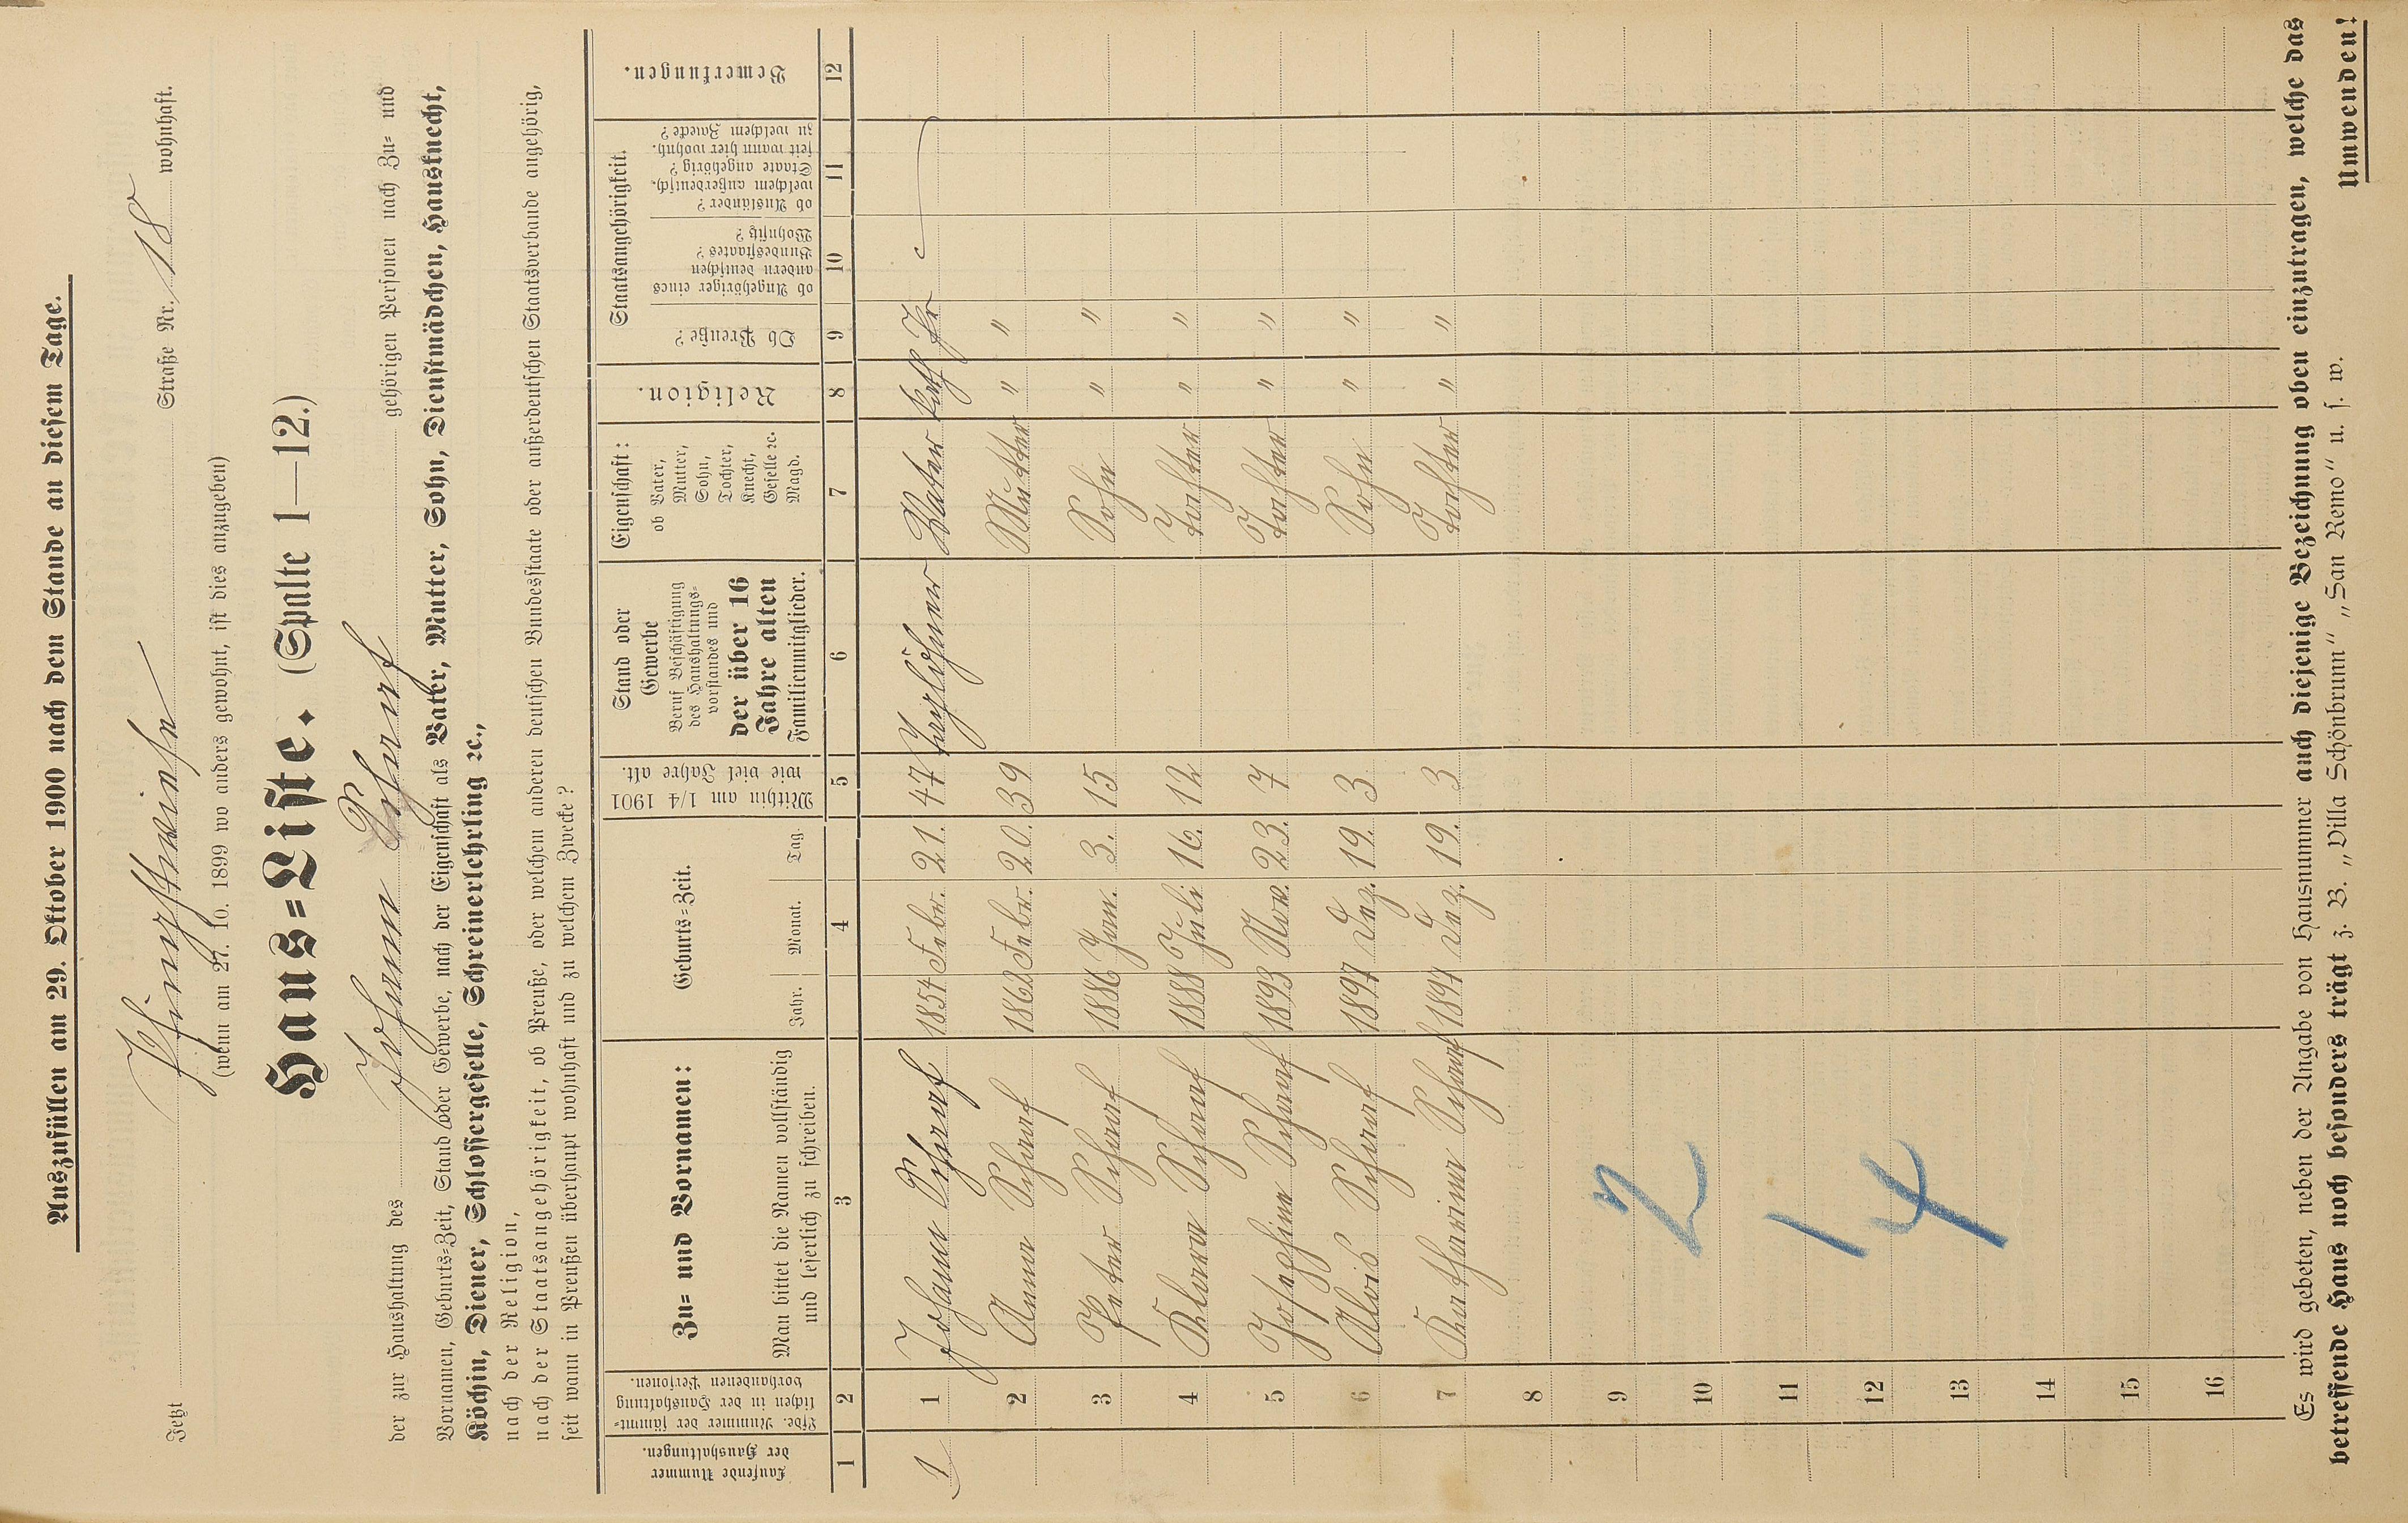 Auszufüllen am 29. Oktober 1900 nach dem Stande an diesem Tage.
Jetzt Pfingstweide Straße Nr. 18 wohnhaft.
(wenn am 27. 10. 1899 wo anders gewohnt, ist dies anzugeben)
Haus=Liste. (Spalte 1—12.)
der zur Haushaltung des Johann Scharf gehörigen Personen nach Zu= und
Vornamen, Geburts=Zeit, Stand oder Gewerbe, nach der Eigenschaft als Vater, Mutter, Sohn, Dienstmädchen, Hausknecht,
Köchin, Diener, Schlossergeselle, Schreinerlehrling ꝛc.,
nach der Religion,
nach der Staatsangehörigkeit, ob Preuße, oder welchem anderen deutschen Bundesstaate oder außerdeutschen Staatsverbande angehörig,
seit wann in Preußen überhaupt wohnhaft und zu welchem Zwecke?
Laufende Nummer der Haushaltungen.
Lfde. Nummer der sämmt=lichen in der Haushaltung vorhandenen Personen.
Zu= und Vornamen:
Man bittet die Namen vollständig
und leserlich zu schreiben.
Geburts=Zeit.
Jahr. Monat. Tag.
Mithin am 1/4 1901
wie viel Jahre alt.
Stand oder
Gewerbe
Beruf Beschäftigung
des Haushaltungs=
vorstandes und
der über 16
Jahre alten
Familienmitglieder.
Eigenschaft:
ob Vater,
Mutter,
Sohn,
Tochter,
Knecht,
Geselle ꝛc.
Magd.
Religion.
Staatsangehörigkeit.
Ob Preuße?
ob Angehöriger eines
andern deutschen
Bundesstaates?
Wohnsitz?
ob Ausländer?
welchem außerdeutsch.
Staate angehörig?
seit wann hier wohnh.
zu welchem Zwecke?
Bemerkungen.
1 2 3 4 5 6 7 8 9 10 11 12
1 1 Johann Scharf 1854 Febr. 21. 47 Taglöhner Vater Kath Pr
2 Anna Scharf 1862 Febr. 20. 39 Mutter " "
3 Peter Scharf 1886 Jan. 3. 15 Sohn " "
4 Klara Scharf 1888 Juli 16. 12 Tochter " "
5 Josephine Scharf 1893 Nov. 23. 7 Tochter " "
6 Alois Scharf 1897 Dez. 19. 3 Sohn " "
7 Katharina Scharf 1897 Dez. 19. 3 Tochter " "
8
9
10
11
12
13
14
15
16
2
1 4
Es wird gebeten, neben der Angabe von Hausnummer auch diejenige Bezeichnung oben einzutragen, welche das
betreffende Haus noch besonders trägt z. B. „Villa Schönbrunn" „San Remo" u. s. w.
Umwenden!